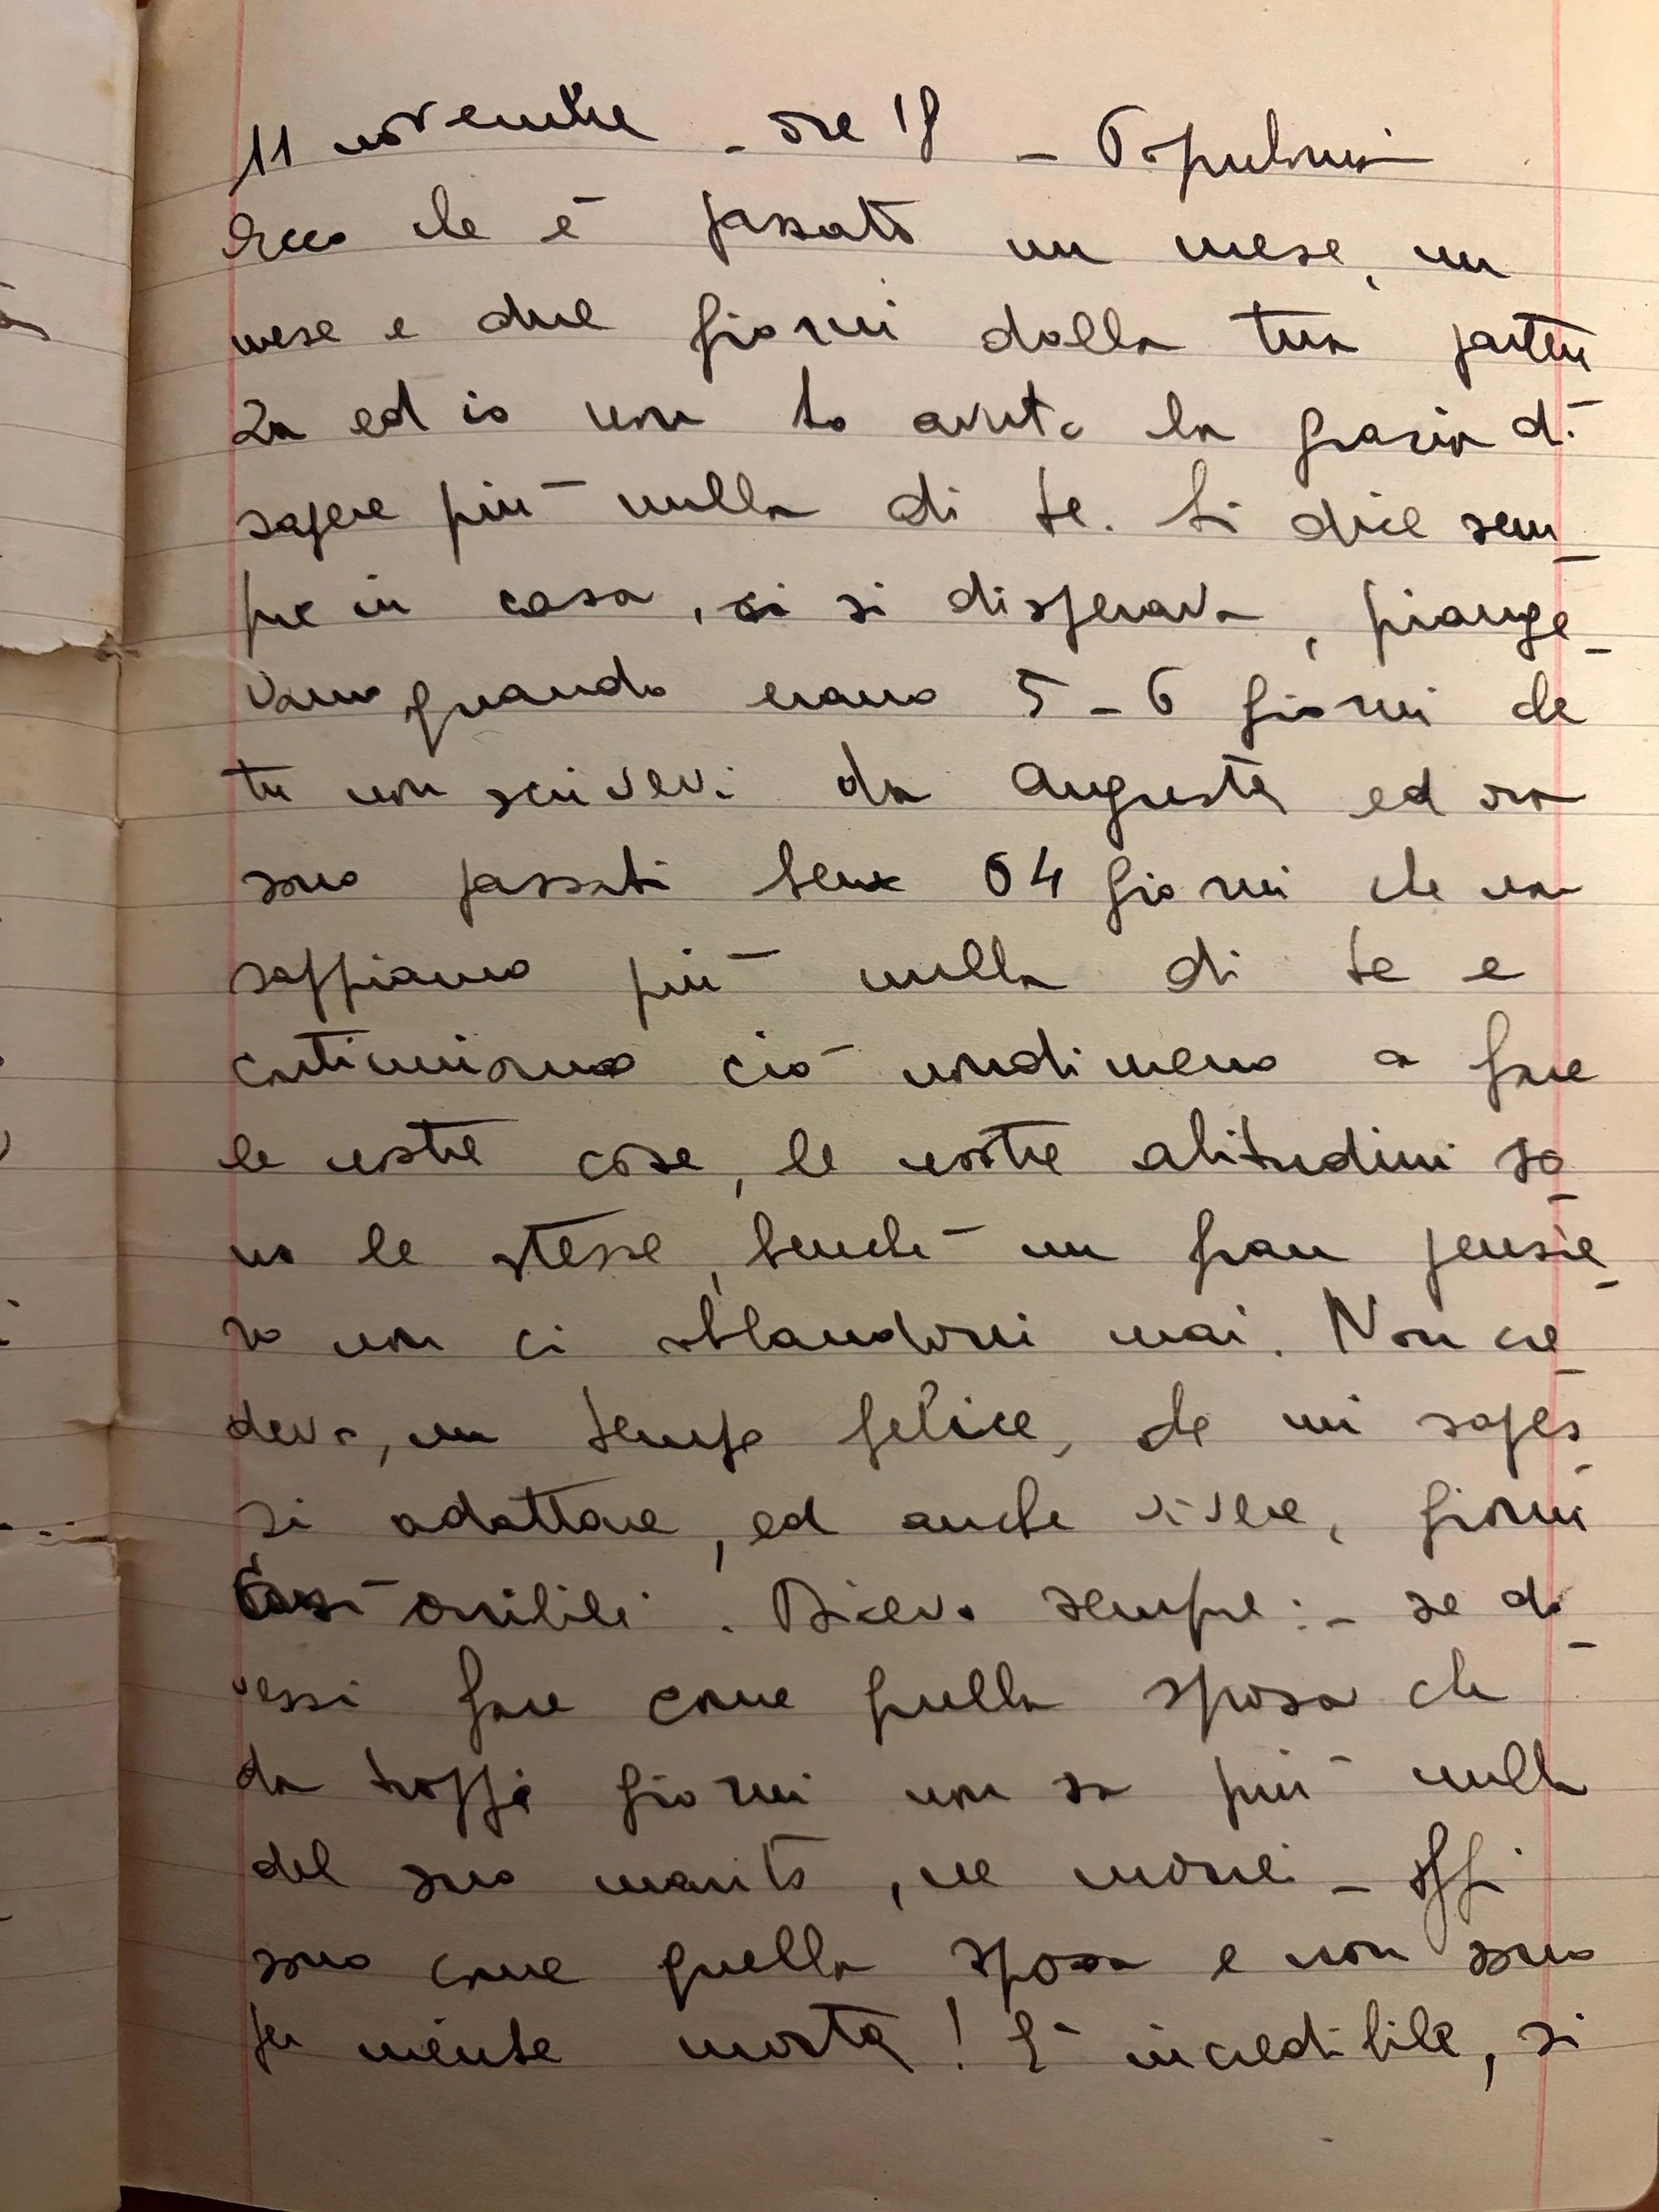 11 novembre - ore 18 - Populonia
Ecco che è passato un mese, un
mese e due giorni dalla tua parten
za ed io non ho avuto la grazia di
sapere più nulla di te. Si dice sem-
pre in casa, si si disperava, piange-
vamo quando erano 5-6 giorni che
tu non scrivevi da Augusta ed ora
sono passati bene 64 giorni che non
sappiamo più nulla di te e
continuiamo ciò nondimeno a fare
le nostre cose, le nostre abitudini so-
no le stesse, benché un gran pensie-
ro non ci abbandoni mai. Non cre-
devo, un tempo felice, che mi sapes-
si adattare, ed anche vivere, giorni
così orribili. Dicevo sempre: - se do-
vessi fare come quella sposa che
da troppi giorni non sa più nulla
del suo marito, ne morrei - Oggi
sono come quella sposa e non sono
per niente morta! È incredibile, si